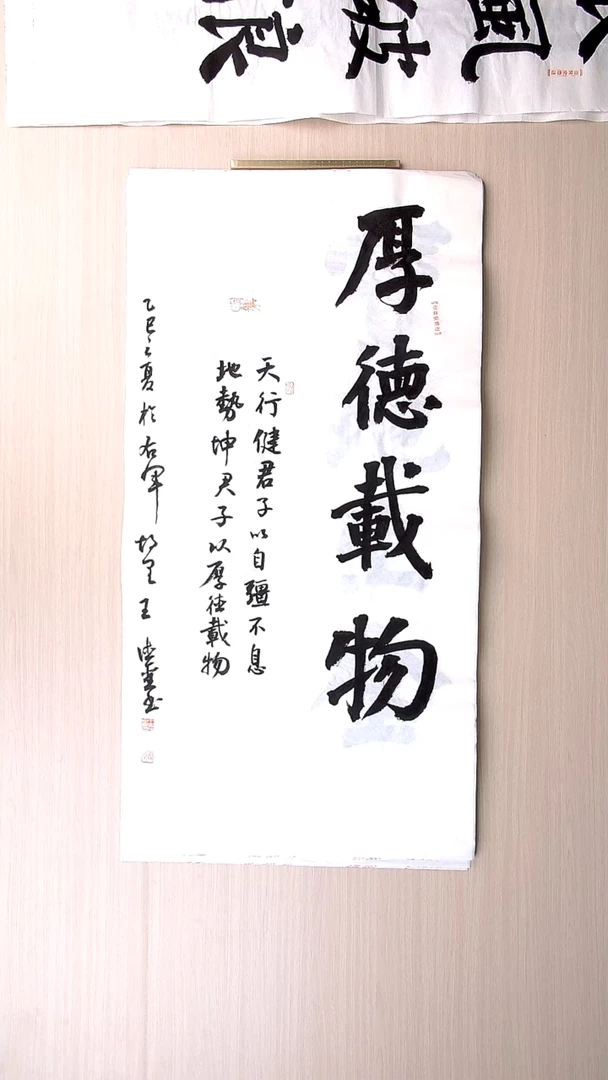 厚德載物
天行健君子以自疆不息
地勢坤君子以厚德載物
乙巳之夏於右軍故里王
風波浪